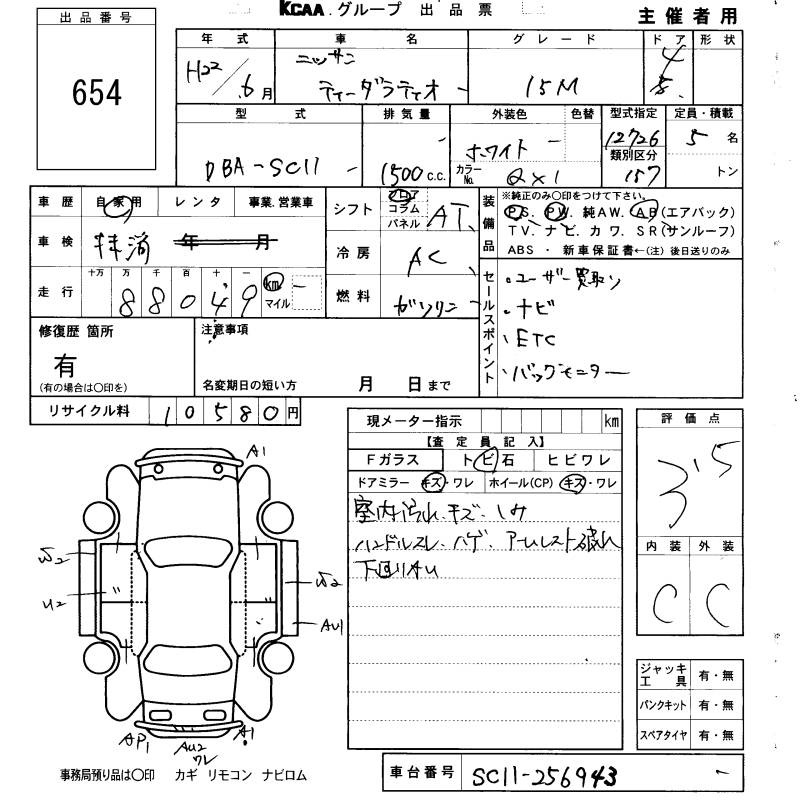 KCAA.グループ 出品票
主催者用
出品番号
654
年式 車名 グレード ドア 形状
ニッサン 4
H22/6月 ティーダラティオ 15M
型式 排気量 外装色 色替 型式指定 定員・積載
DBA-SC11 1500 c.c. ホワイト 12726 5名
類別区分
カラーNo. QX1 157 トン
車歴 自家用 レンタ 事業.営業車
シフト フロア コラム パネル AT
装備品 ※純正のみ〇印をつけて下さい。
PS. PW. 純AW. AB(エアバック)
TV. ナビ. カワ. SR(サンルーフ)
ABS ・ 新車保証書←(注) 後日送りのみ
車検 抹消 年 月
冷房 AC
走行 十万 万 千 百 十 一
88049 km マイル
燃料 ガソリン
セールスポイント
・ユーザー買取り
・ナビ
・ETC
・バックモニター
修復歴 箇所
有
(有の場合は〇印を)
注意事項
名変期日の短い方 月 日まで
リサイクル料 10580円
現メーター指示 km
【査定員記入】
Fガラス トビ石 ヒビワレ
ドアミラー キズ・ワレ ホイール(CP) キズ・ワレ
室内汚れ、キズ、しみ
ハンドルスレ、ハゲ、アームレスト破れ
下回りサビ
評価点
3.5
内装 外装
C C
A1
W2
U2
W2
AU1
AP1
AU2
ワレ
A1
ジャッキ工具 有・無
パンクキット 有・無
スペアタイヤ 有・無
事務局預り品は〇印 カギ リモコン ナビロム
車台番号 SC11-256943